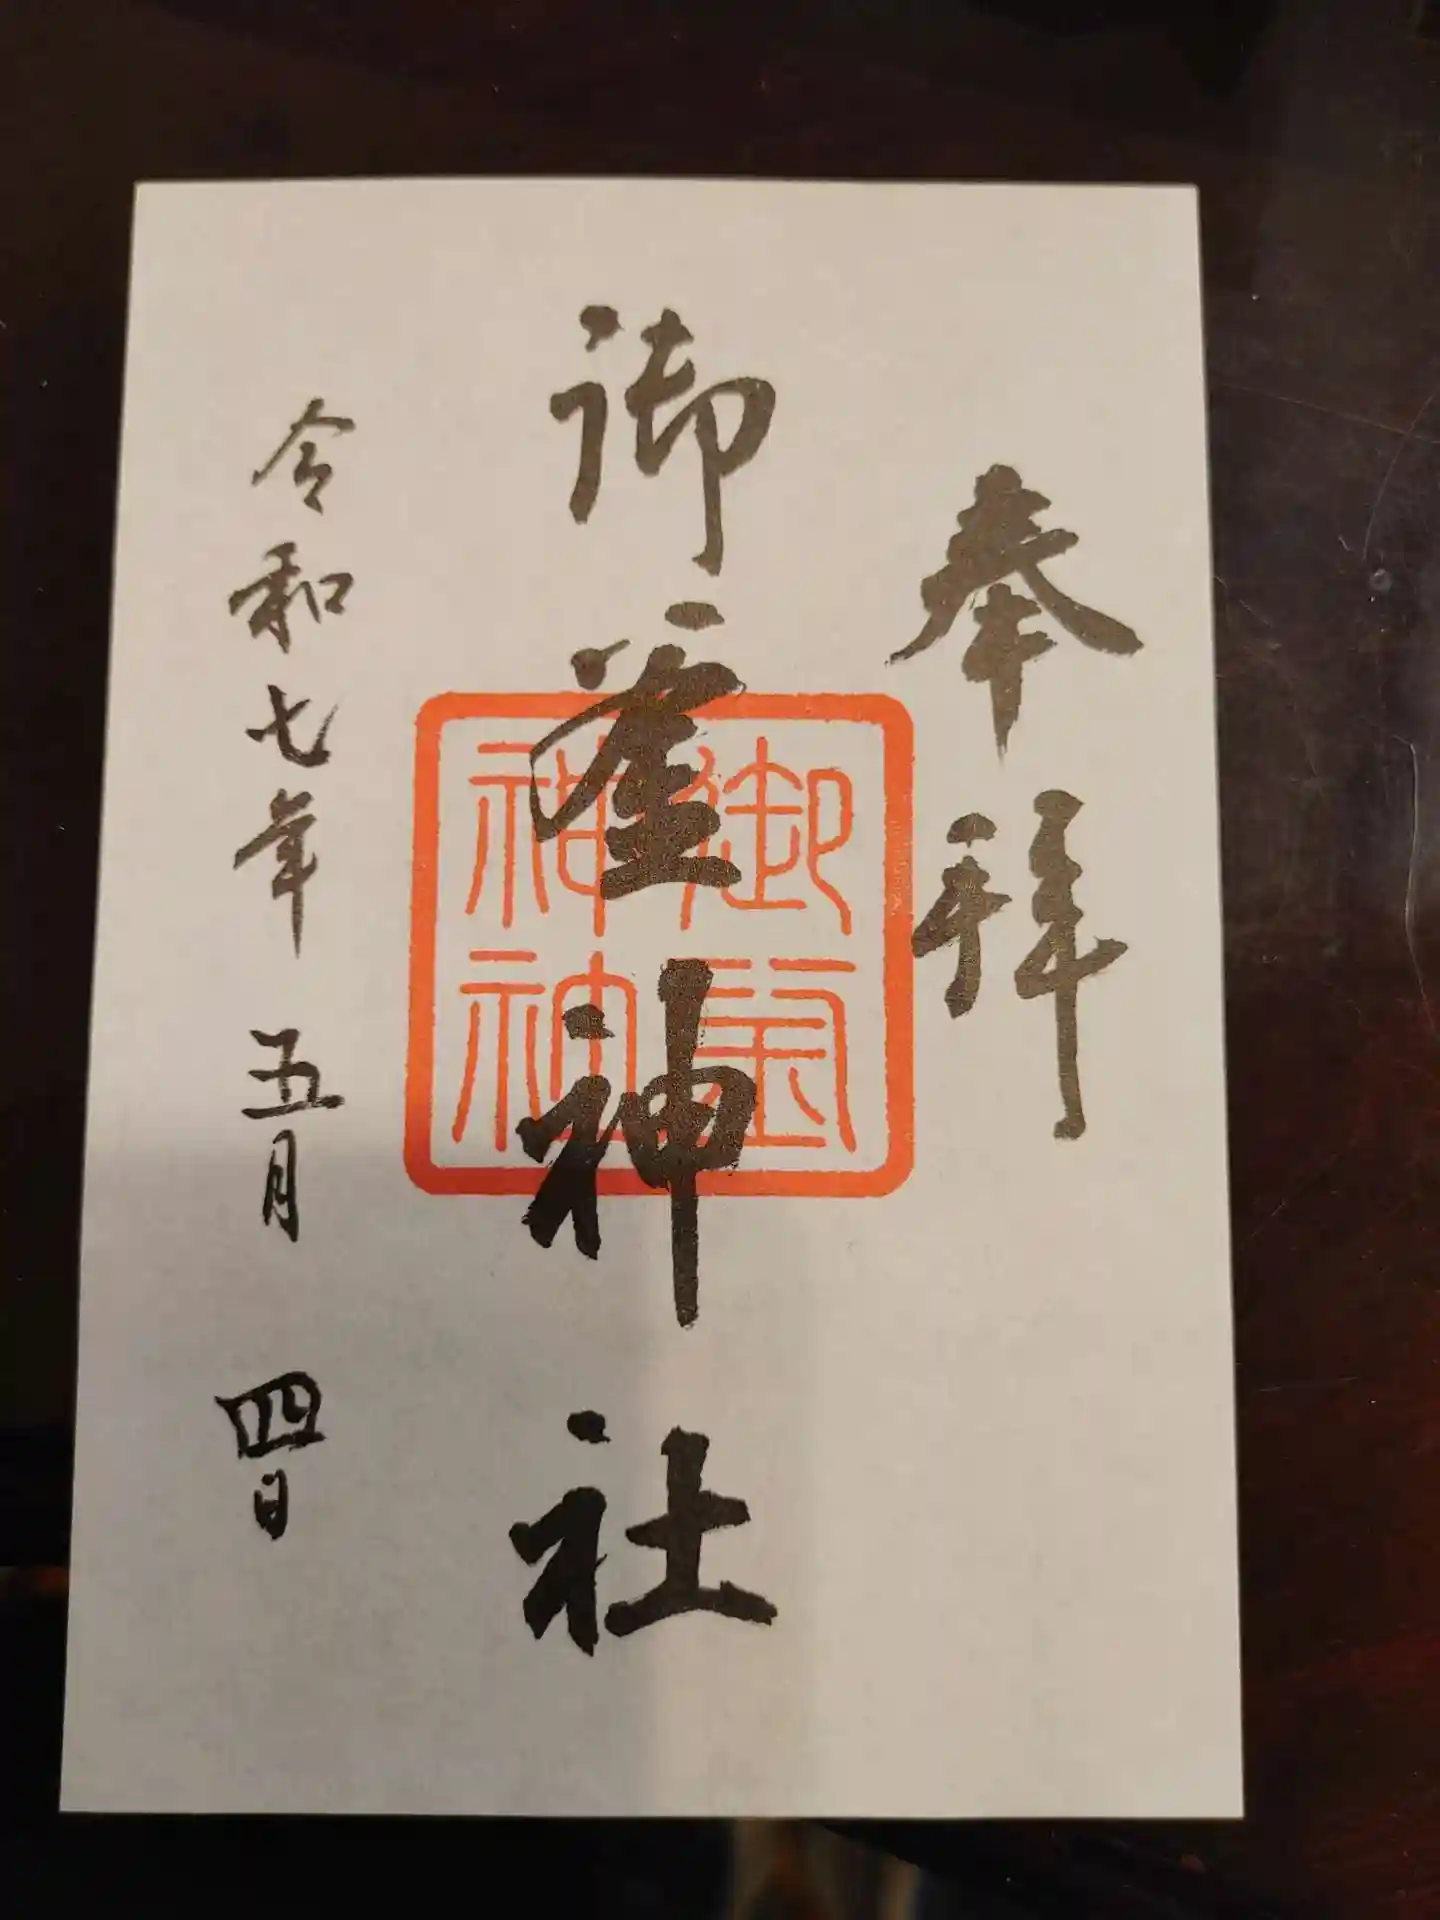 奉拝
御釜神社
御釜神社
令和七年五月四日